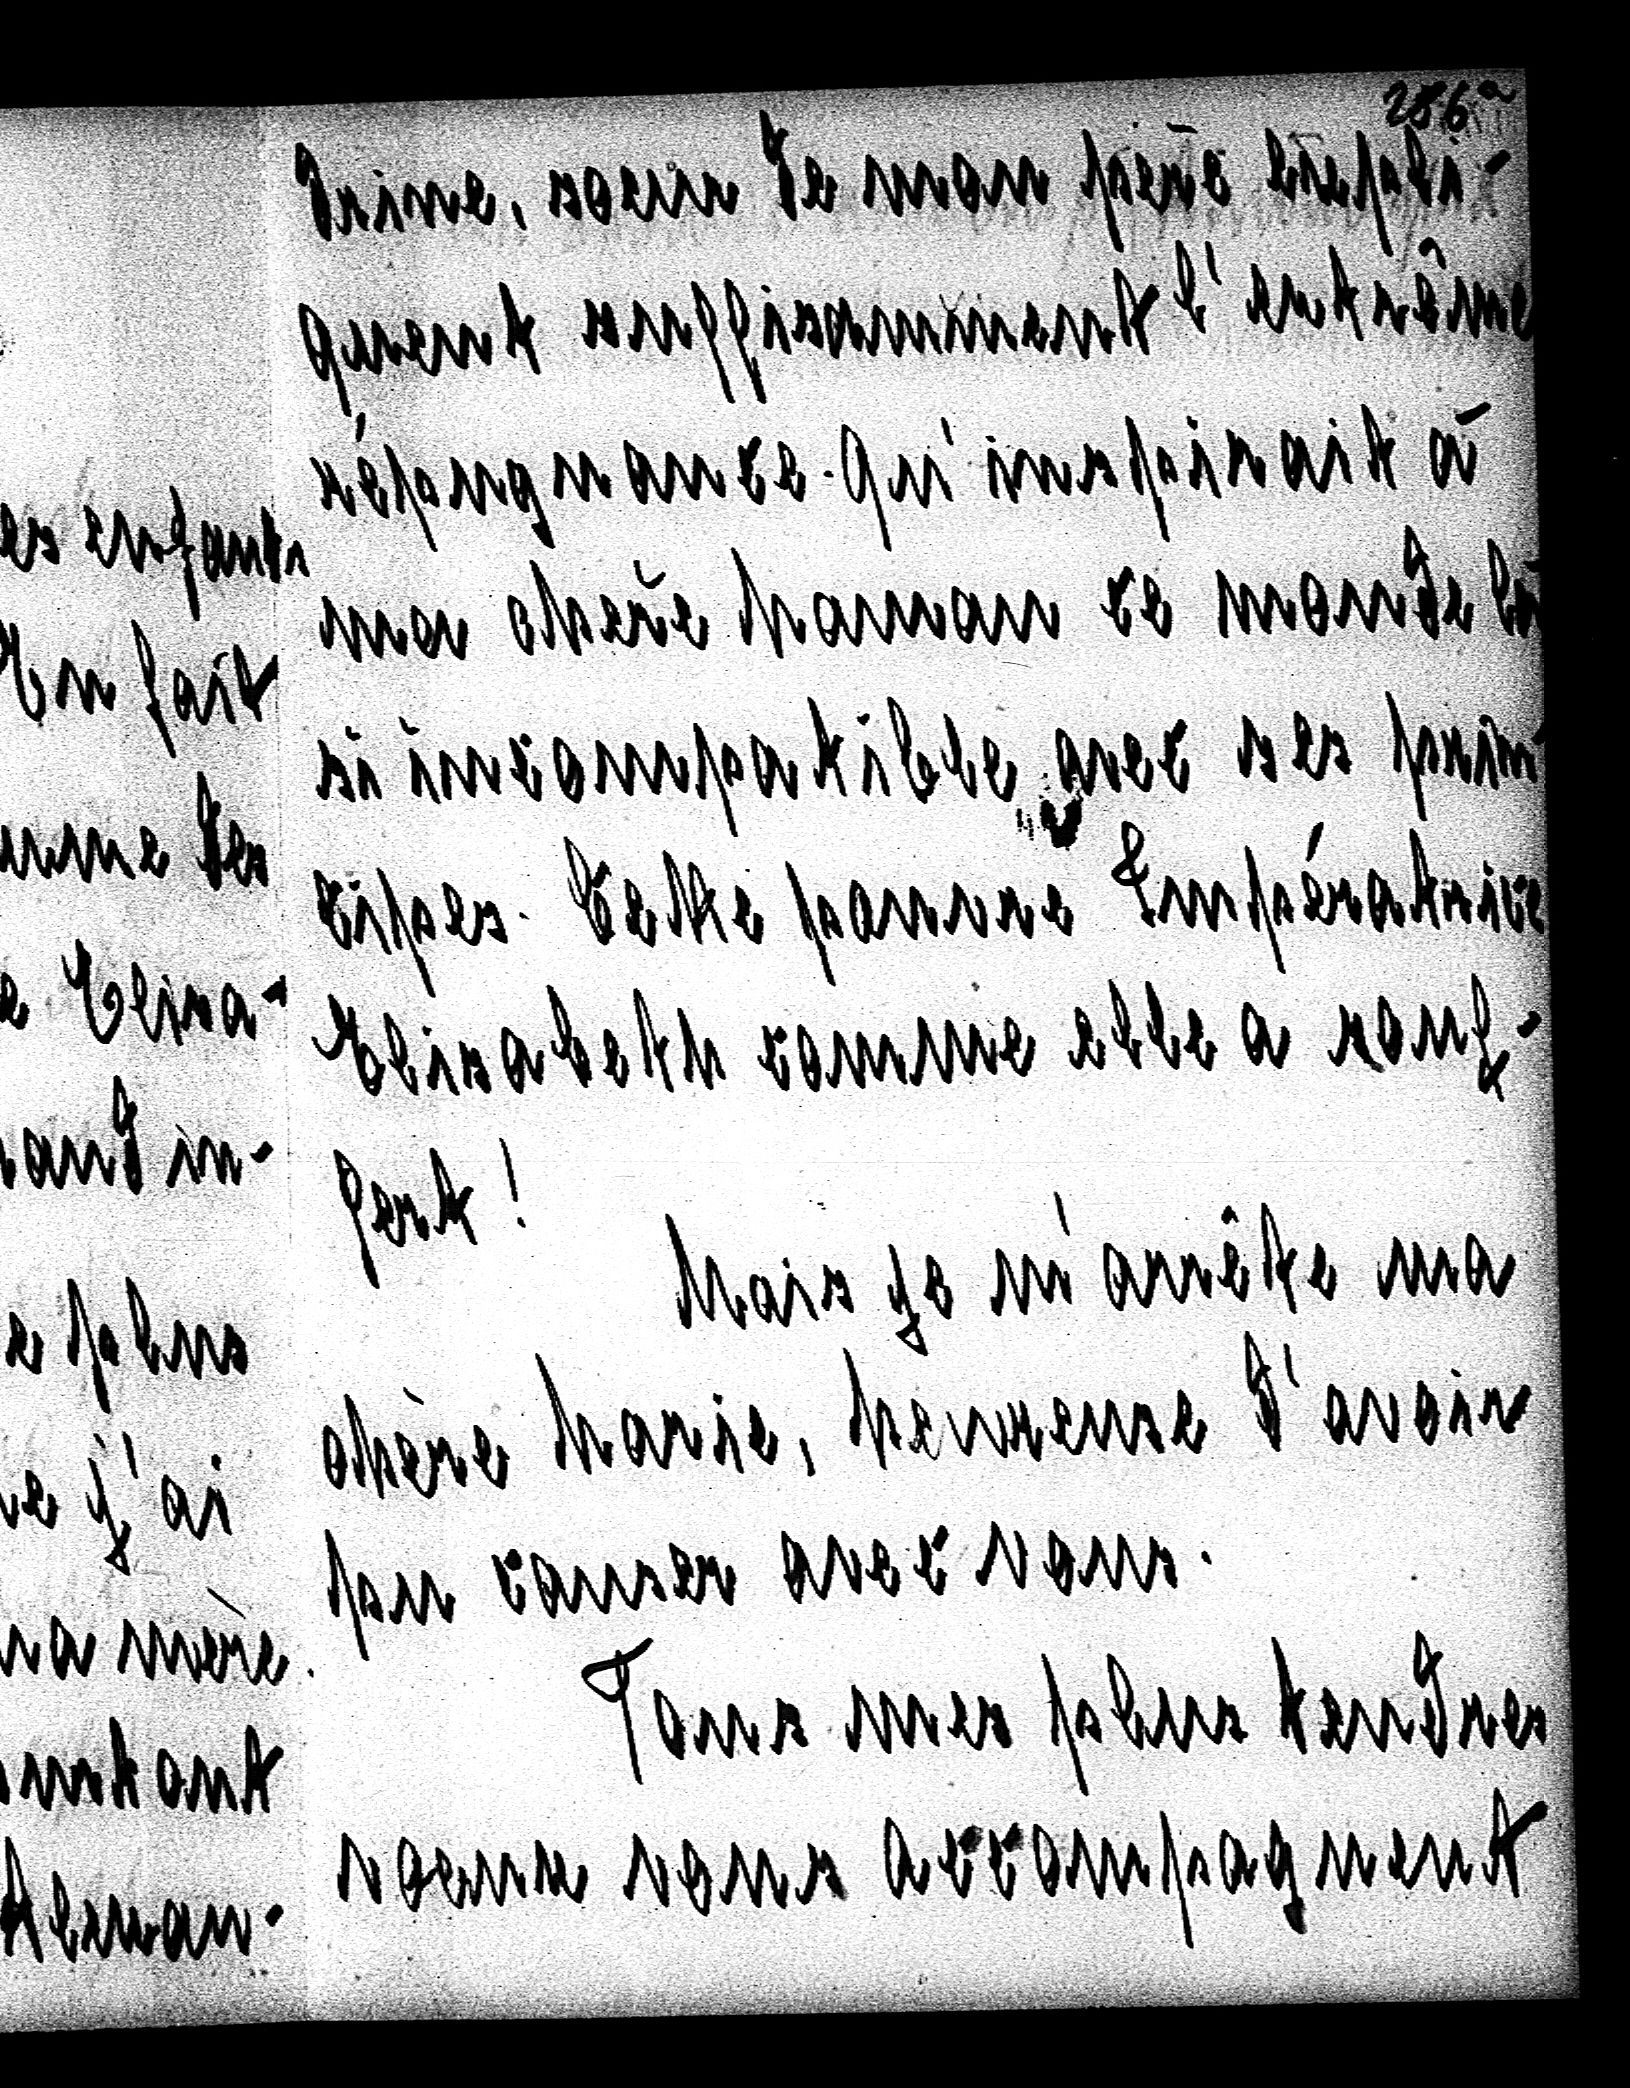 286a
drine, soeur de mon père expli-
quent suffisamment l'extrême
répugnance qu'inspirait à
ma chère Maman ce monde là
si incompatible avec ses prin
cipes. Cette pauvre Impératrice
Elisabeth comme elle a souf-
fert!
Mais je m'arrête ma
chère Marie, heureuse d'avoir
pu causer avec vous.
Tous mes plus tendres
voeux vous accompagnent
enfants
fait
des
Elisa-
in-
plus
j'ai
mère.